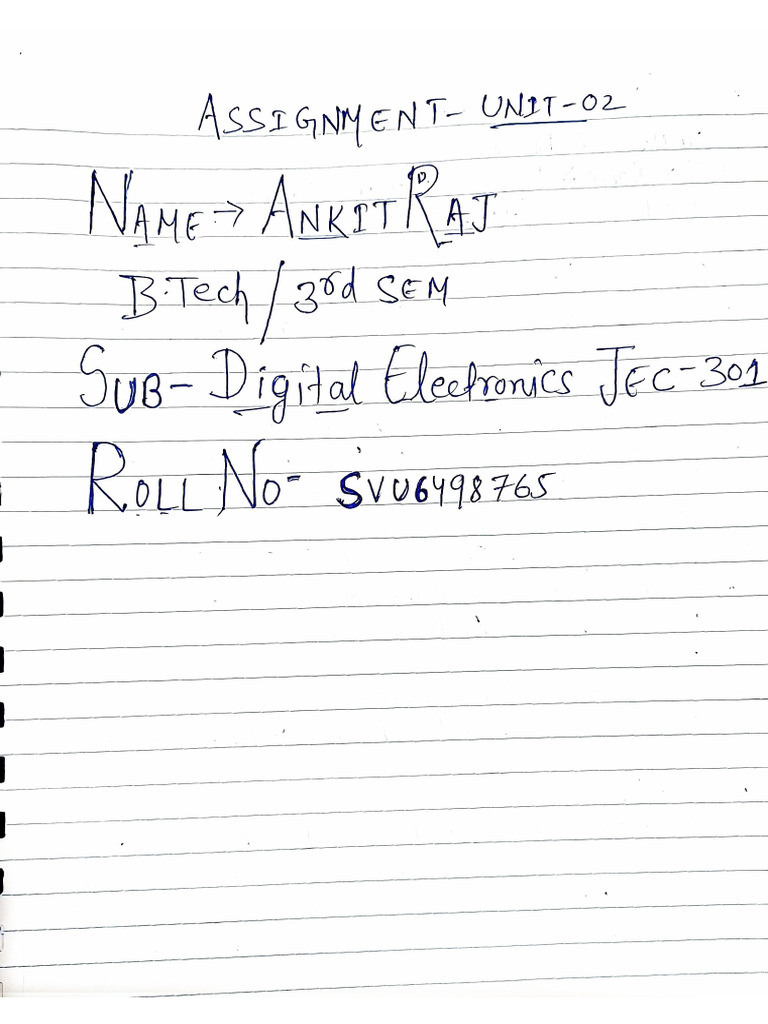 ASSIGNMENT- UNIT-02
NAME → ANKIT RAJ
B.Tech / 3rd SEM
SUB- Digital Electronics JEC-301
ROLL NO- SVU6498765